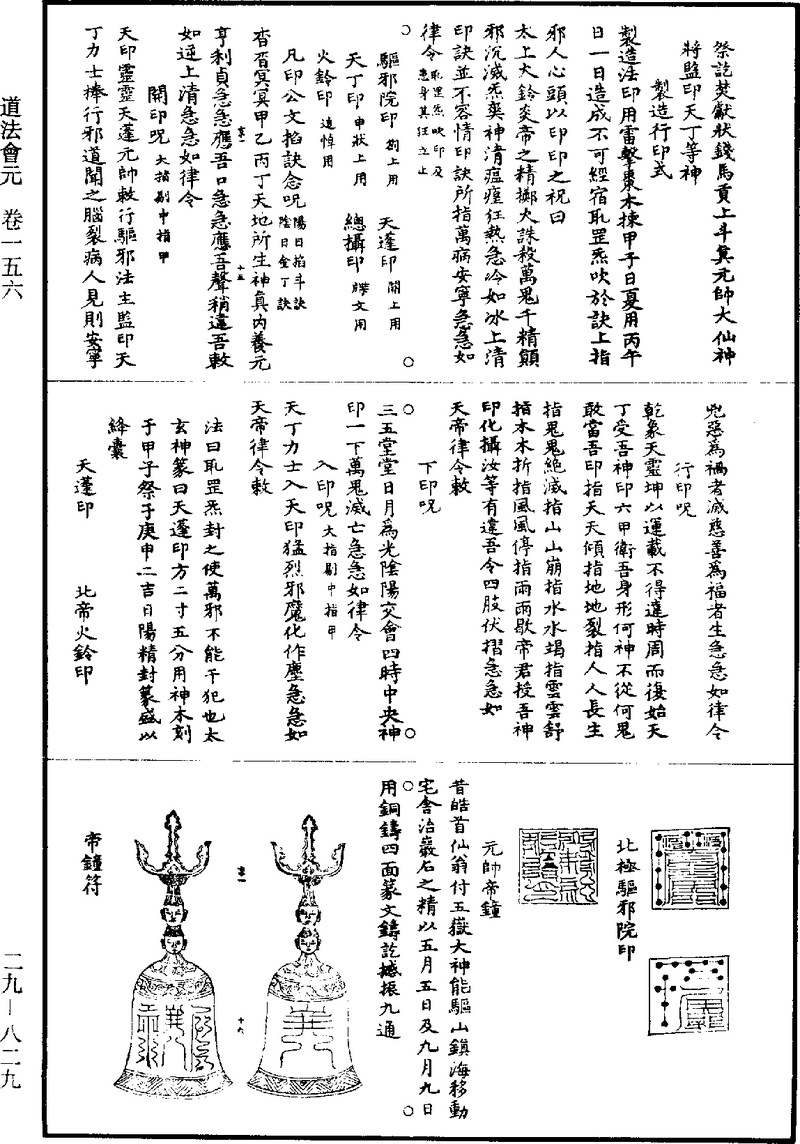 道法會元　卷一五六
二九—八二九
祭訖焚獻狀錢馬貢上斗真元帥大仙神
將監印天丁等神
製造行印式
製造法印用雷擊棗木揀甲子日夏用丙午
日一日造成不可經宿取罡炁吹於訣上指
邪人心頭以印印之祝曰
太上大鈴炎帝之精擲火誅殺萬鬼千精顛
邪沉滅炁爽神清瘟㾮狂熱急冷如冰上清
印訣並不容情印訣所指萬病安寧急急如
律令取罡炁吹印及患身其狂立止
驅邪院印劄上用　天蓬印關上用
天丁印申狀上用　總攝印牒文用
火鈴印遣悼用
凡印公文掐訣念呪陽日掐斗訣陰日金丁訣
杳杳冥冥甲乙丙丁天地所生神真內養元
亨利貞急急應吾口急急應吾聲稍違吾敕
如逆上清急急如律令
開印呪大指剔中指甲
天印靈靈天蓬元帥敕行驅邪法主監印天
丁力士捧行邪道聞之腦裂病人見則安寧
兇惡為禍者滅慈善為福者生急急如律令
行印呪
乾象天靈坤以運載不得違時周而復始天
丁受吾神印六甲衛吾身形何神不從何鬼
敢當吾印指天天傾指地地裂指人人長生
指鬼鬼絕滅指山山崩指水水竭指雲雲舒
指木木折指風風停指雨雨歇帝君授吾神
印化攝汝等有違吾令四肢伏摺急急如
天帝律令敕
下印呪
三五堂堂日月為光陰陽交會四時中央神
印一下萬鬼滅亡急急如律令
入印呪大指剔中指甲
天丁力士入天印猛烈邪魔化作塵急急如
天帝律令敕
法曰取罡炁封之使萬邪不能干犯也太
玄神篆曰天蓬印方二寸五分用神木刻
于甲子祭于庚申二吉日陽精封篆盛以
絳囊
天蓬印　北帝火鈴印
北極驅邪院印
元帥帝鐘
昔皓首仙翁付五嶽大神能驅山鎮海移動
宅舍治巖石之精以五月五日及九月九日
用銅鑄四面篆文鑄訖撼振九通
帝鐘符